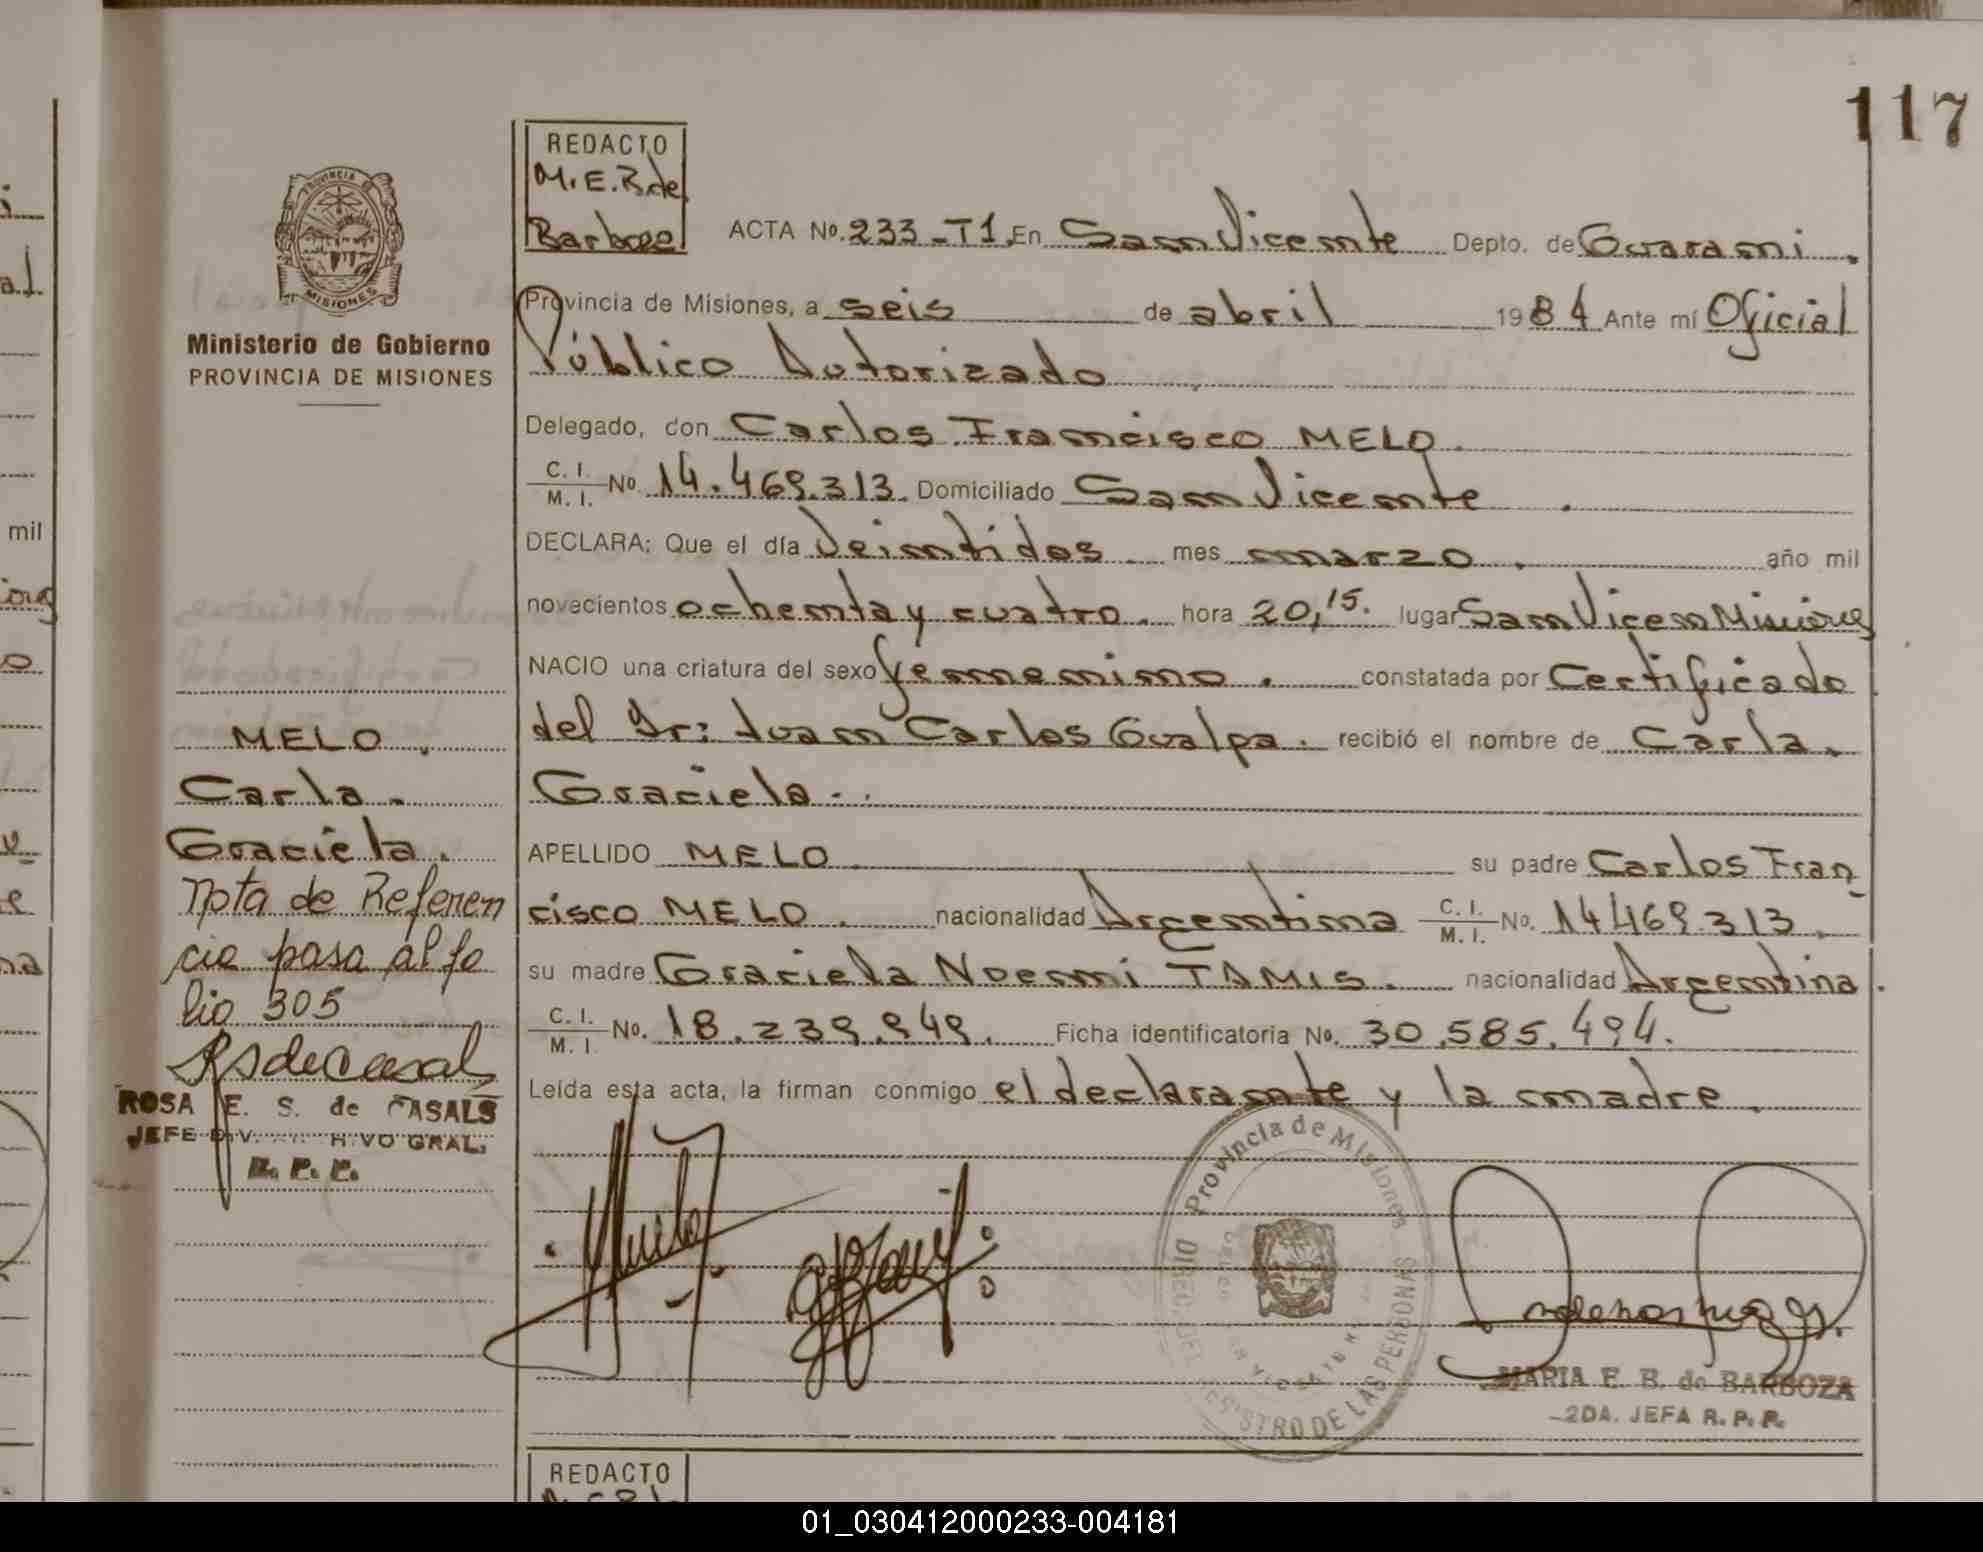 117
REDACTO
M. E. B. de
Barboza
ACTA No. 233 - T1, En San Vicente Depto. de Guarani.
Provincia de Misiones, a seis de abril 1984 Ante mí Oficial
Público Autorizado
Delegado, don Carlos Francisco MELO.
C. I. / M. I. No. 14.469.313. Domiciliado San Vicente.
DECLARA: Que el día Veintidos mes marzo. año mil
novecientos ochenta y cuatro. hora 20,15. lugar San Vicen Misiones
NACIO una criatura del sexo femenino. constatada por Certificado
del Dr: Juan Carlos Gualpa. recibió el nombre de Carla.
Graciela..
APELLIDO MELO su padre Carlos Fran
cisco MELO. nacionalidad Argentina C. I. / M. I. No. 14469.313.
su madre Graciela Noemi TAMIS. nacionalidad Argentina.
C. I. / M. I. No. 18.239.949. Ficha identificatoria No. 30.585.494.
Leída esta acta, la firman conmigo el declarante y la madre.
PROVINCIA DE
MISIONES
Ministerio de Gobierno
PROVINCIA DE MISIONES
MELO.
Carla.
Graciela.
Nota de Referen
cia pasa al fo
lio 305
RSdeCasals
ROSA E. S. de CASALS
JEFE DIV. HIVO GRAL.
R. P. P.
Provincia de Misiones
DIREC. DEL REGISTRO DE LAS PERSONAS
MARIA E. B. de BARBOZA
2DA. JEFA R. P. P.
REDACTO
mil
01_030412000233-004181